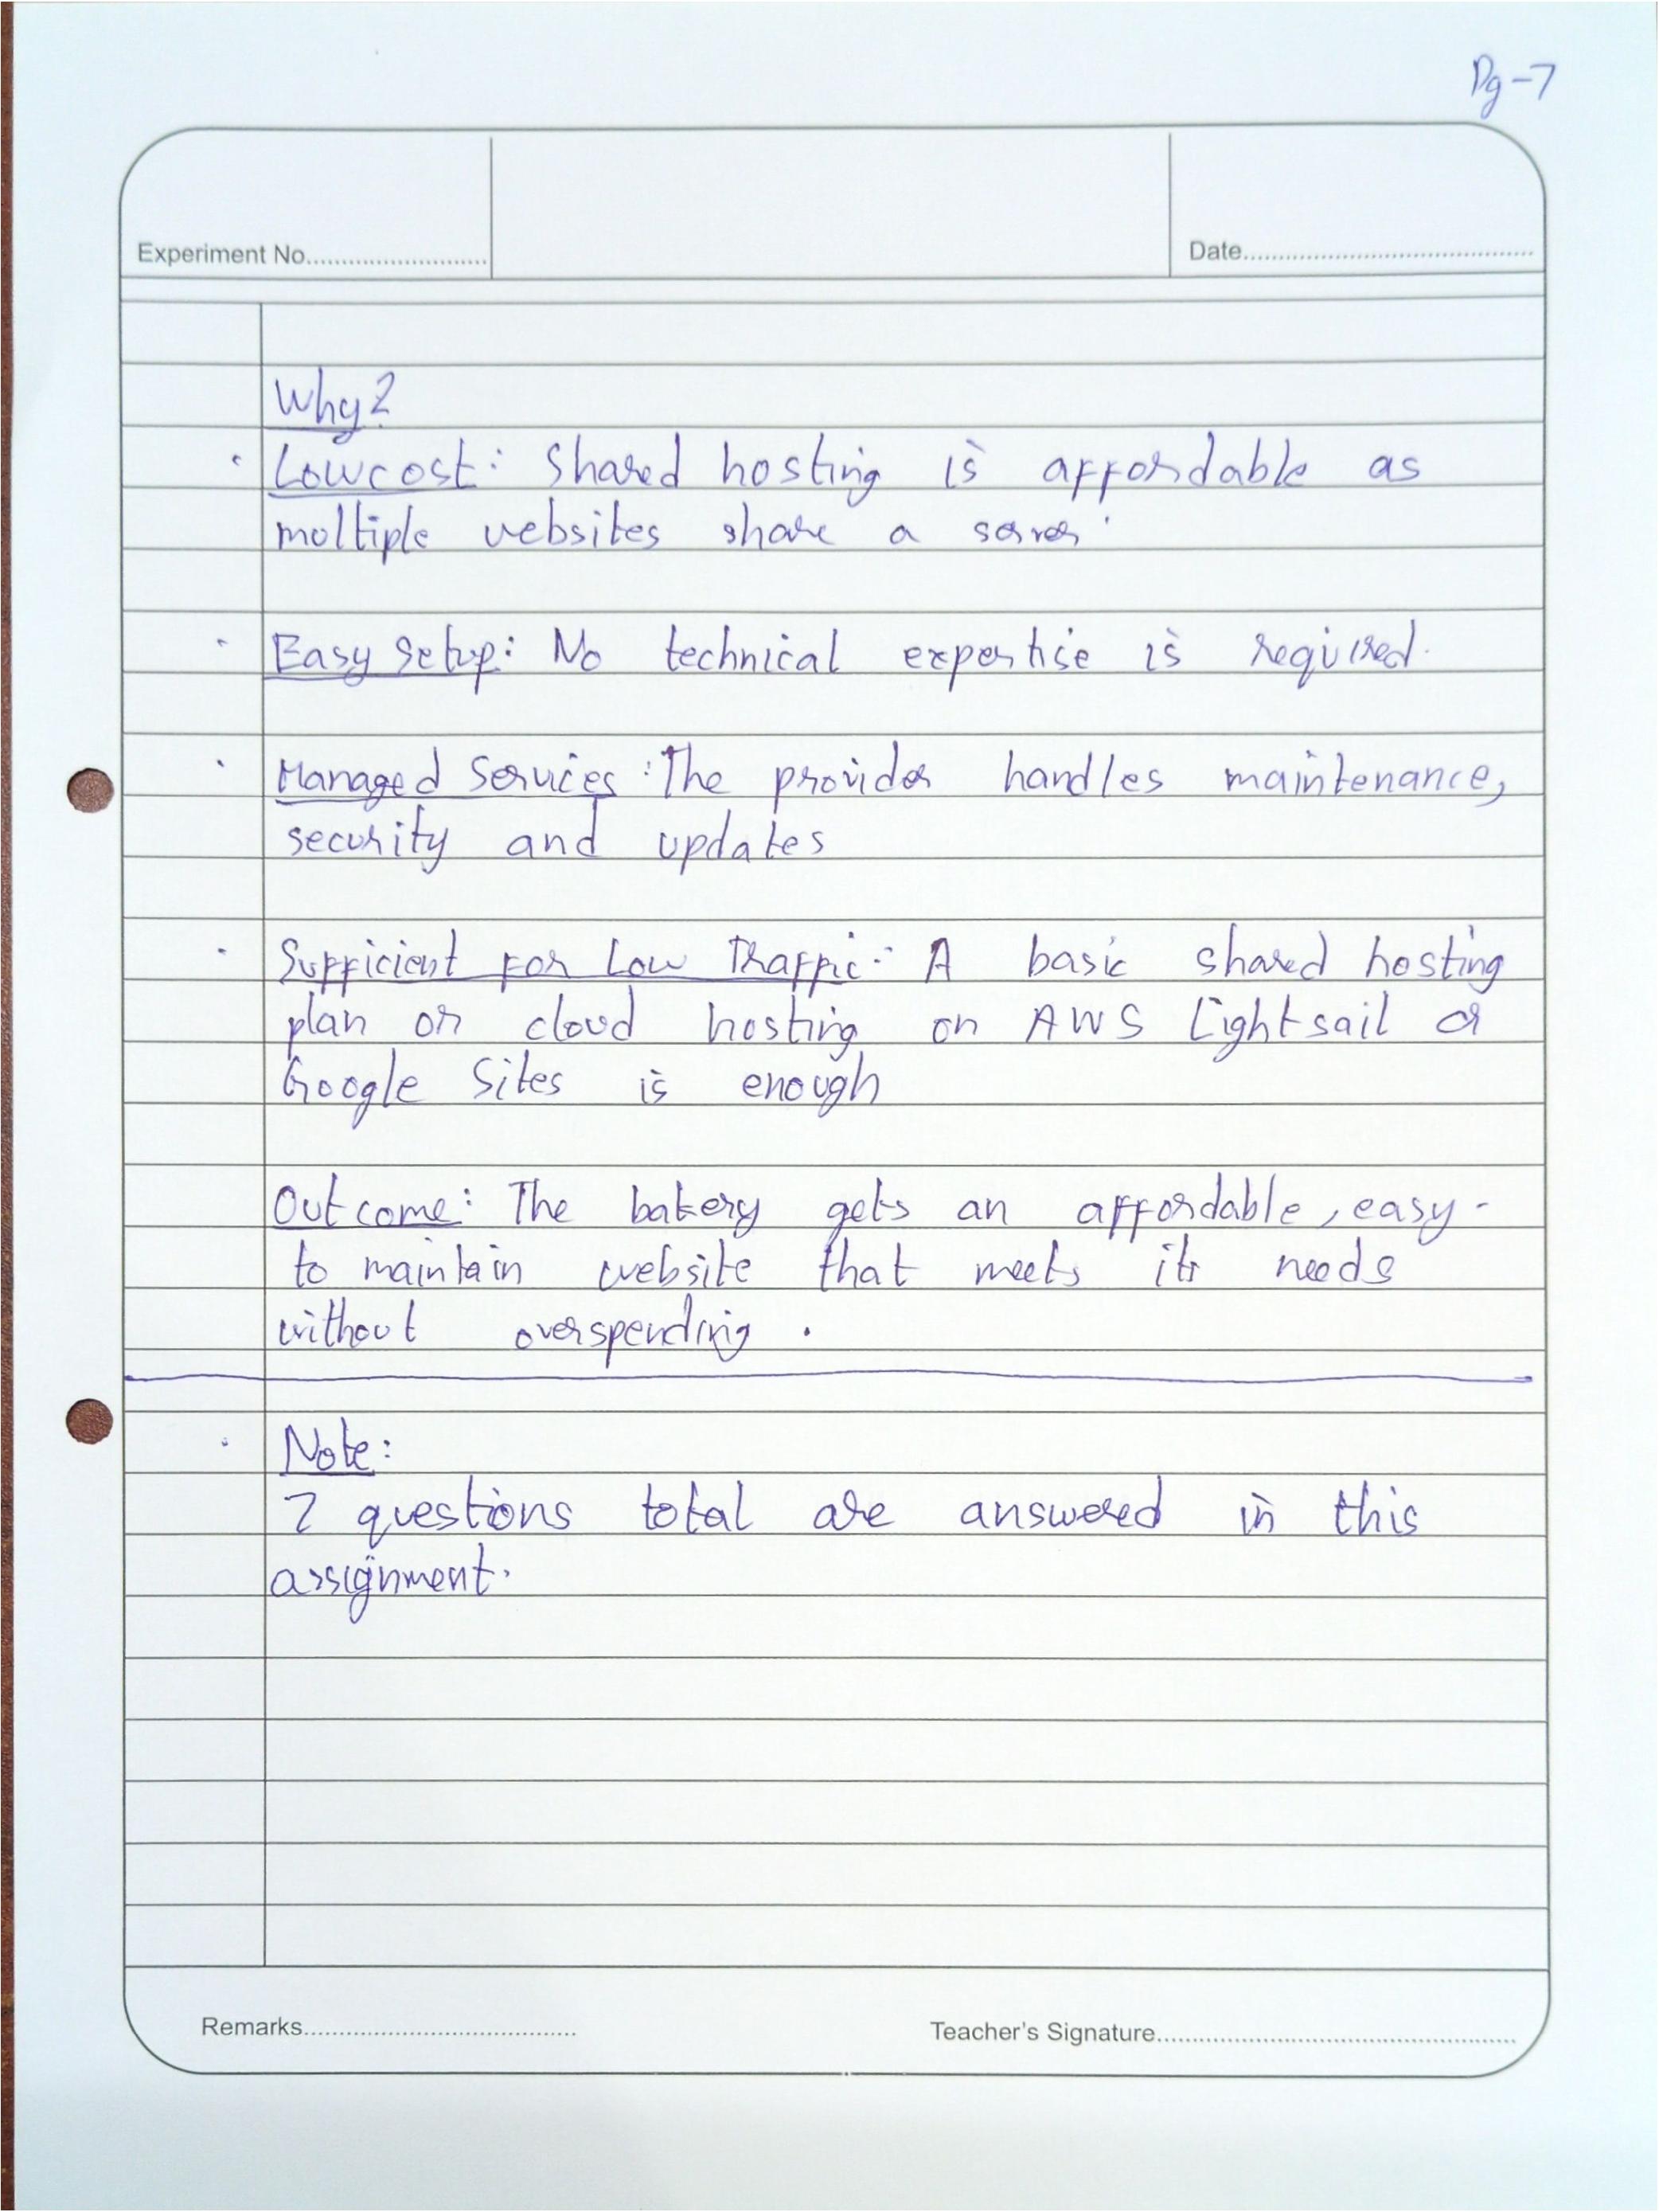 Pg-7
Experiment No.
Date
Why?
Lowcost: Shared hosting is affordable as
moltiple websites share a server.
Easy Setup: No technical expertise is required.
Managed Services: The provider handles maintenance,
security and updates
Sufficient for Low Traffic: A basic shared hosting
plan or cloud hosting on AWS Lightsail or
Google Sites is enough
Outcome: The bakery gets an affordable, easy-
to maintain website that meets its needs
without overspending.
Note:
7 questions total are answered in this
assignment.
Remarks
Teacher's Signature